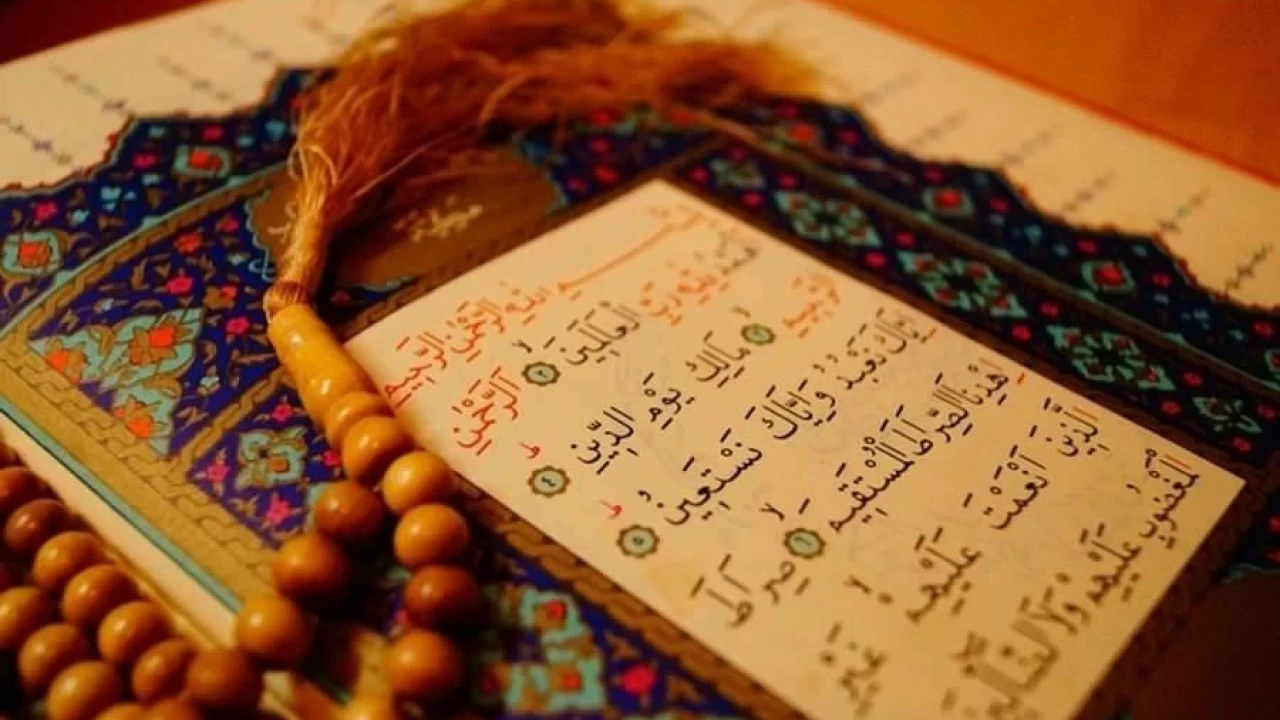 بِسْمِ اللّٰهِ الرَّحْمٰنِ الرَّحِيمِ
اَلْحَمْدُ لِلّٰهِ رَبِّ الْعَالَمِينَ ۙ ﴿٢﴾ اَلرَّحْمٰنِ
الرَّحِيمِ ۙ ﴿٣﴾ مَالِكِ يَوْمِ الدِّينِ ۜ ﴿٤﴾
اِيَّاكَ نَعْبُدُ وَاِيَّاكَ نَسْتَعِينُ ۜ ﴿٥﴾
اِهْدِنَا الصِّرَاطَ الْمُسْتَقِيمَ ۙ ﴿٦﴾ صِرَاطَ
الَّذِينَ اَنْعَمْتَ عَلَيْهِمْ ۙ غَيْرِ
الْمَغْضُوبِ عَلَيْهِمْ وَلَا الضَّالِّينَ